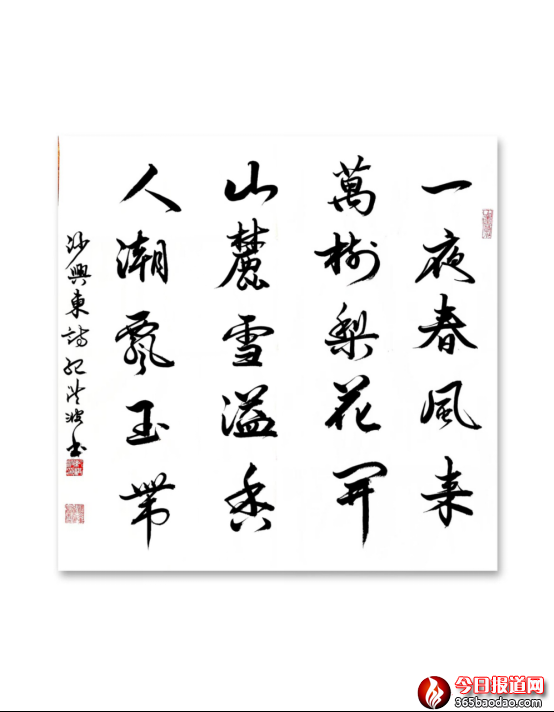 一夜春風来
萬樹梨花開
山麓雪溢香
人潮飄玉帶
沙興東詩
書
今日报道网
365baodao.com